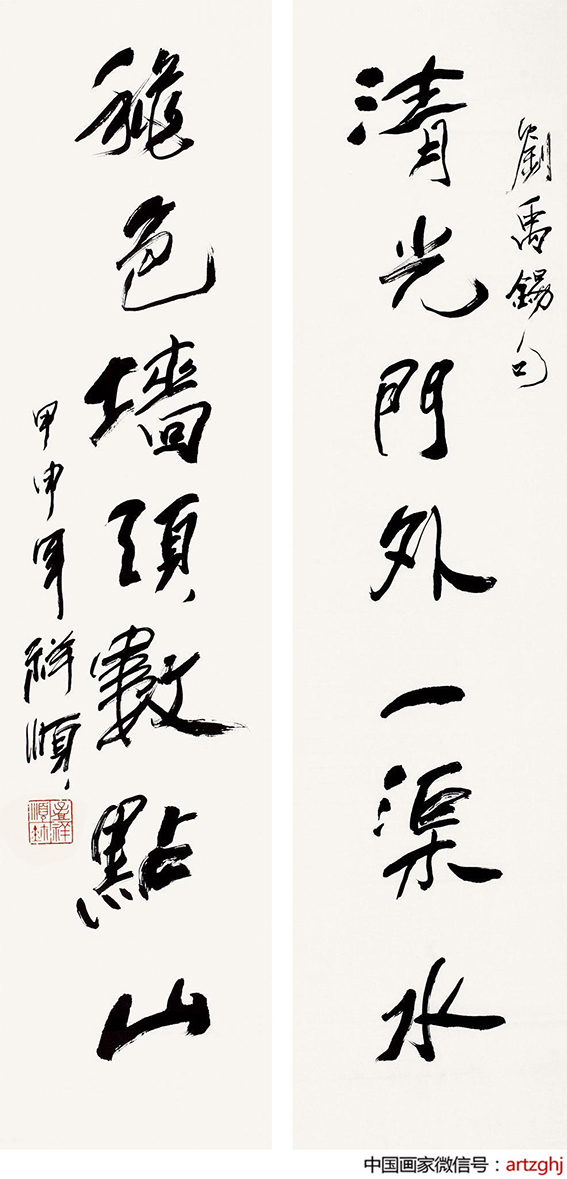 劉禹錫句
清光門外一渠水
穐色墻頭數點山
甲申年祥順
孟祥順
中国画家微信号：artzghj